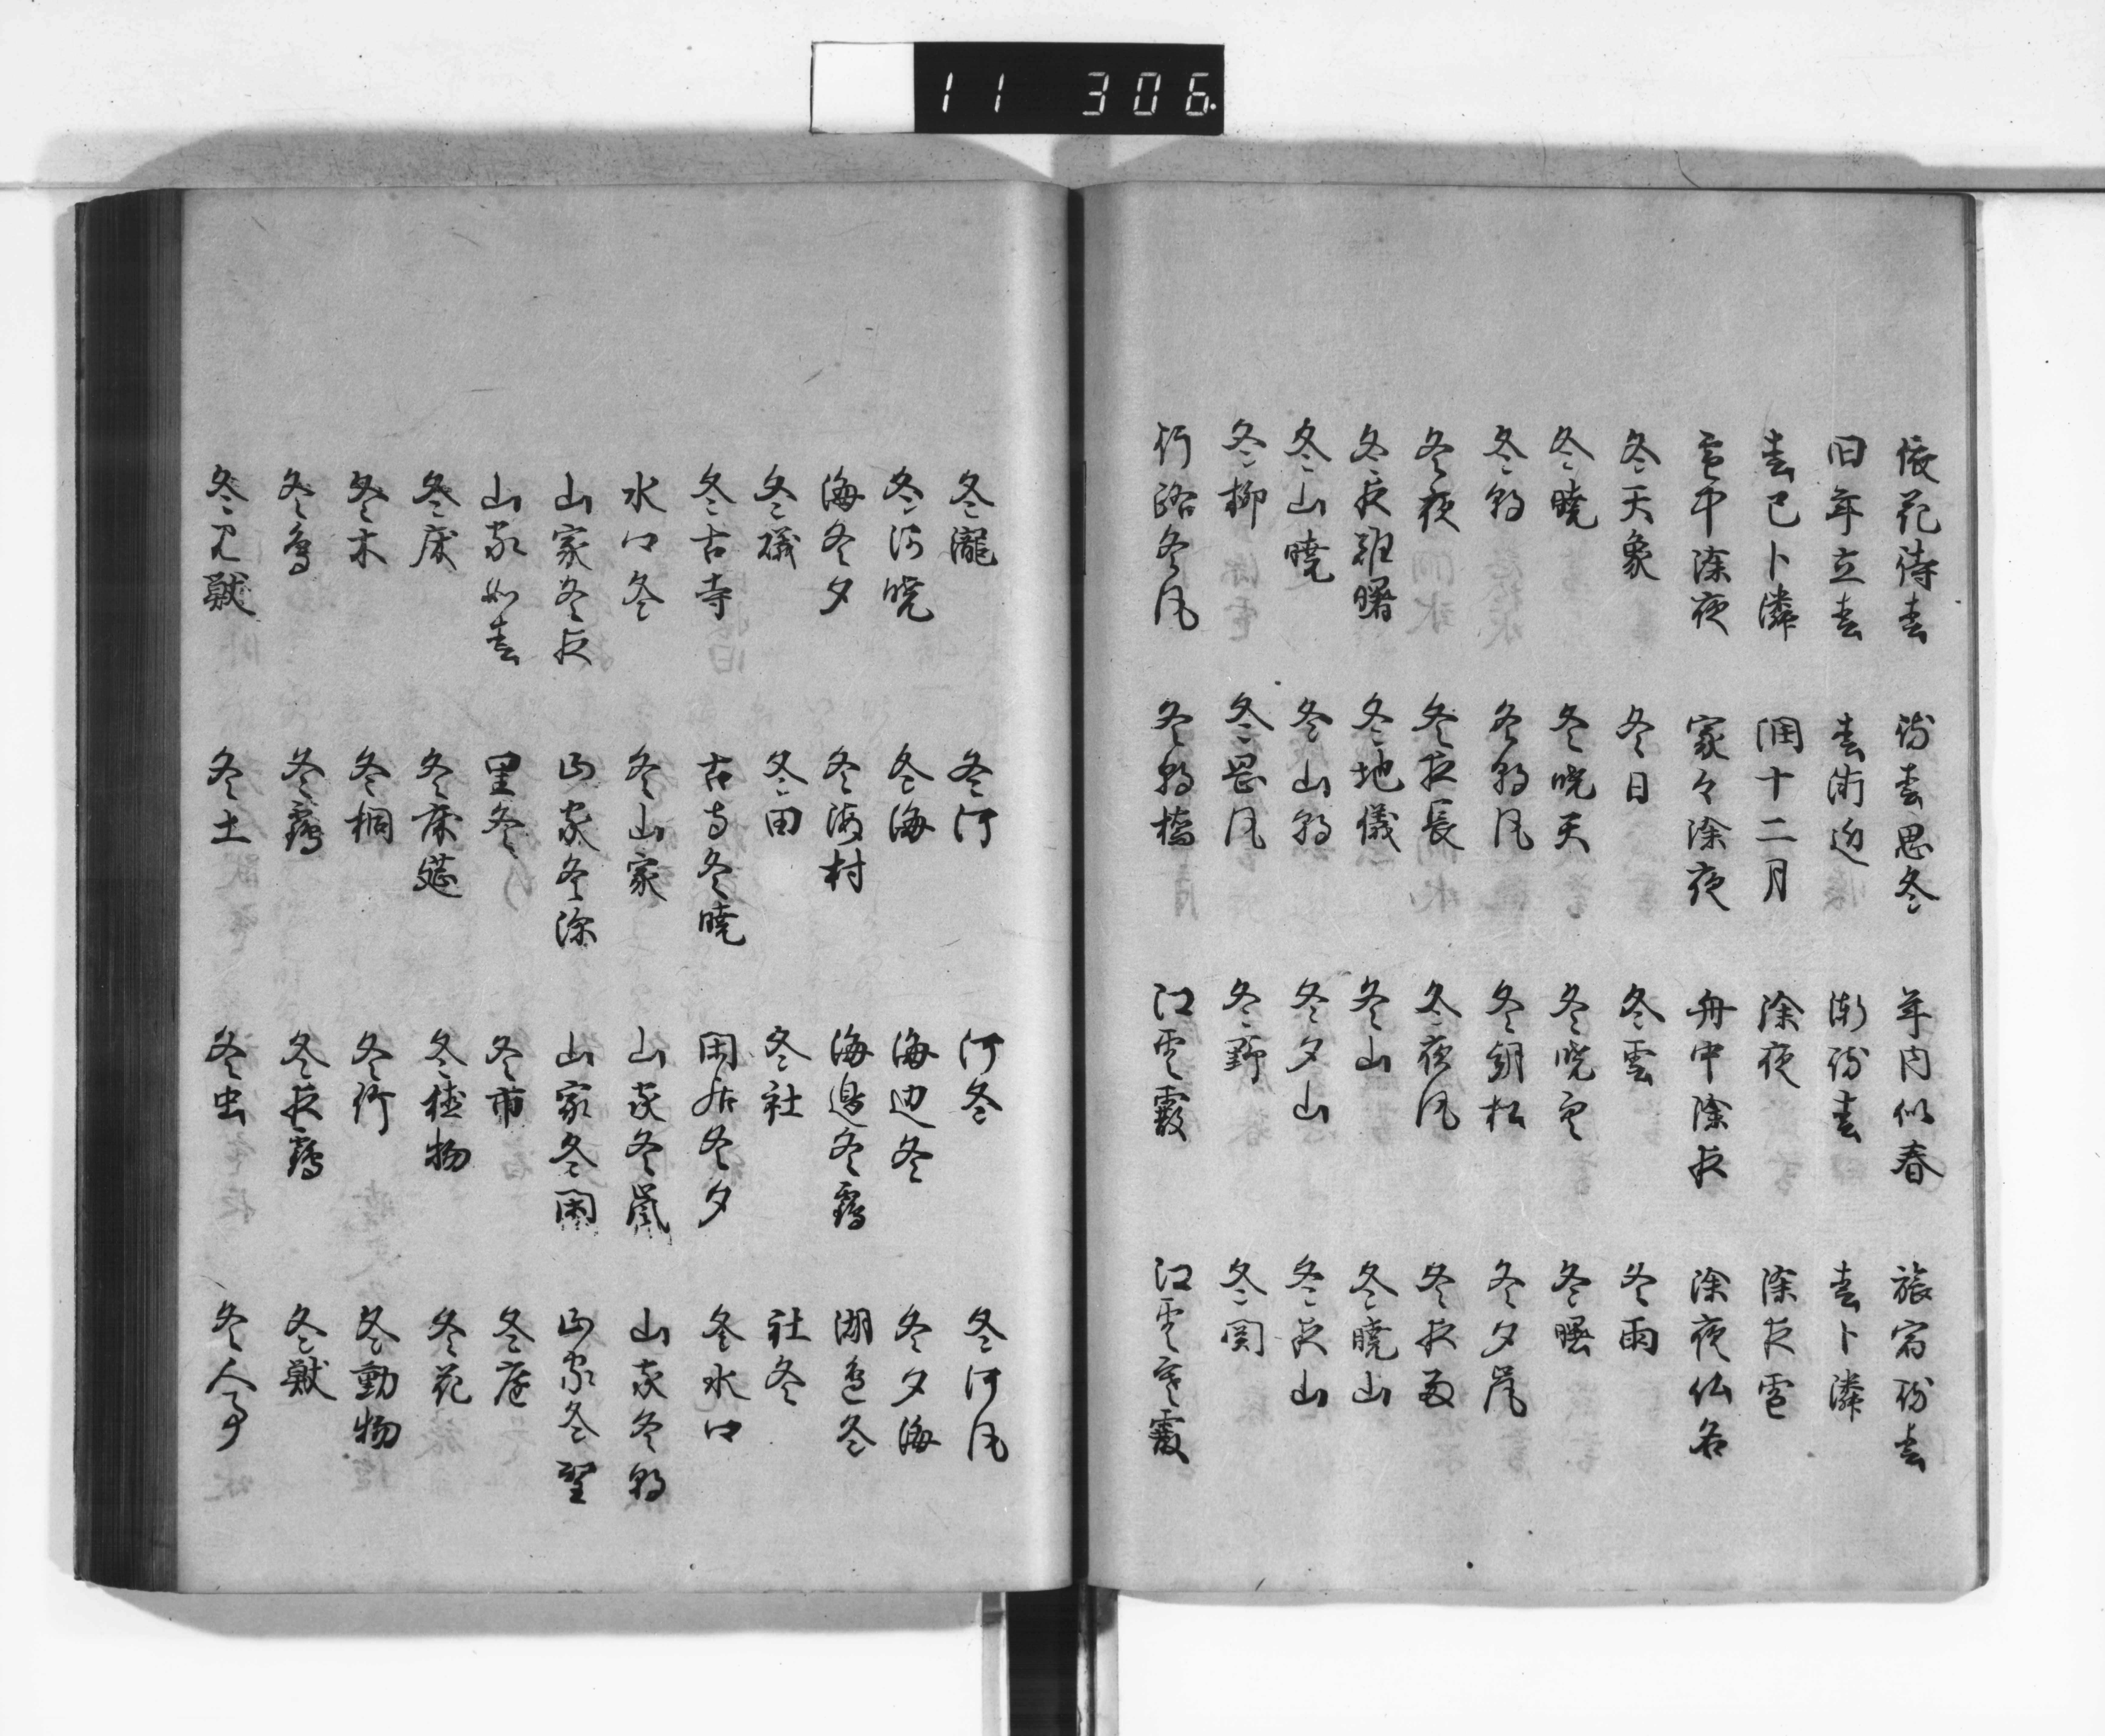 11 306
依花待春 待春思冬 年内似春 旅宿待春
旧年立春 春漸近 漸待春 春卜隣
春已卜隣 閏十二月 除夜 除夜雪
雪中除夜 家々除夜 舟中除夜 除夜仏名
冬天象 冬日 冬雲 冬雨
冬暁 冬暁天 冬暁雲 冬曙
冬朝 冬朝風 冬朝松 冬夕嵐
冬夜 冬夜長 冬夜風 冬夜雨
冬夜難曙 冬地儀 冬山 冬暁山
冬山暁 冬山朝 冬夕山 冬夜山
冬柳 冬岡風 冬野 冬関
行路冬風 冬朝橋 江寒霰 江寒霰
冬滝 冬河 河冬 冬河風
冬河暁 冬海 海辺冬 冬夕海
海冬夕 冬海村 海邊冬鶴 湖邊冬
冬磯 冬田 冬社 社冬
冬古寺 古寺冬暁 閑居冬夕 冬水口
水口冬 冬山家 山家冬嵐 山家冬朝
山家冬夜 山家冬深 山家冬閑 山家冬望
山家如春 里冬 冬市 冬庭
冬床 冬床莚 冬植物 冬花
冬木 冬桐 冬竹 冬動物
冬鳥 冬鶴 冬夜鶴 冬獣
冬獣 冬土 冬虫 冬人事